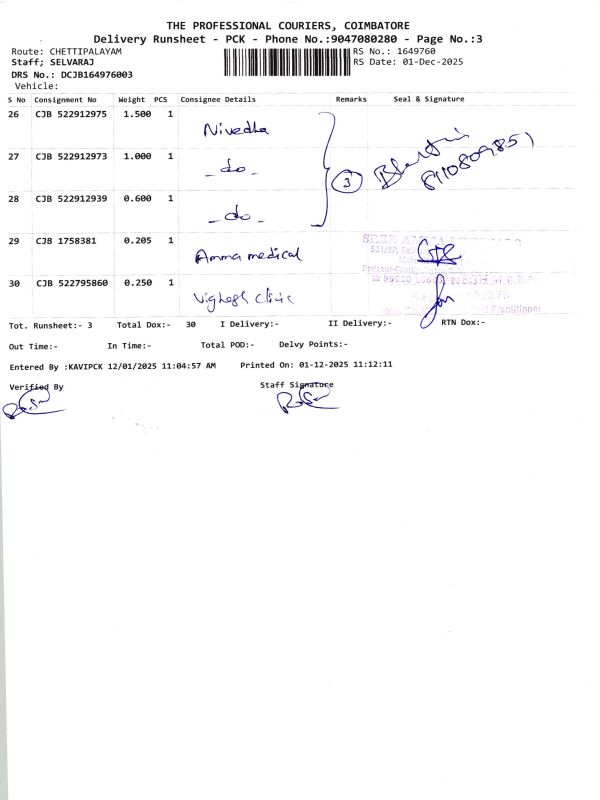 THE PROFESSIONAL COURIERS, COIMBATORE
Delivery Runsheet - PCK - Phone No.:9047080280 - Page No.:3
Route: CHETTIPALAYAM RS No.: 1649760
Staff; SELVARAJ RS Date: 01-Dec-2025
DRS No.: DCJB164976003
Vehicle:
S No Consignment No Weight PCS Consignee Details Remarks Seal & Signature
26 CJB 522912975 1.500 1 Nivedha
27 CJB 522912973 1.000 1 -do- 3
28 CJB 522912939 0.600 1 -do-
29 CJB 1758381 0.205 1 Amma medical
30 CJB 522795860 0.250 1 Vighesh clinic
Tot. Runsheet:- 3 Total Dox:- 30 I Delivery:- II Delivery:- RTN Dox:-
Out Time:- In Time:- Total POD:- Delvy Points:-
Entered By :KAVIPCK 12/01/2025 11:04:57 AM Printed On: 01-12-2025 11:12:11
Verified By Staff Signature